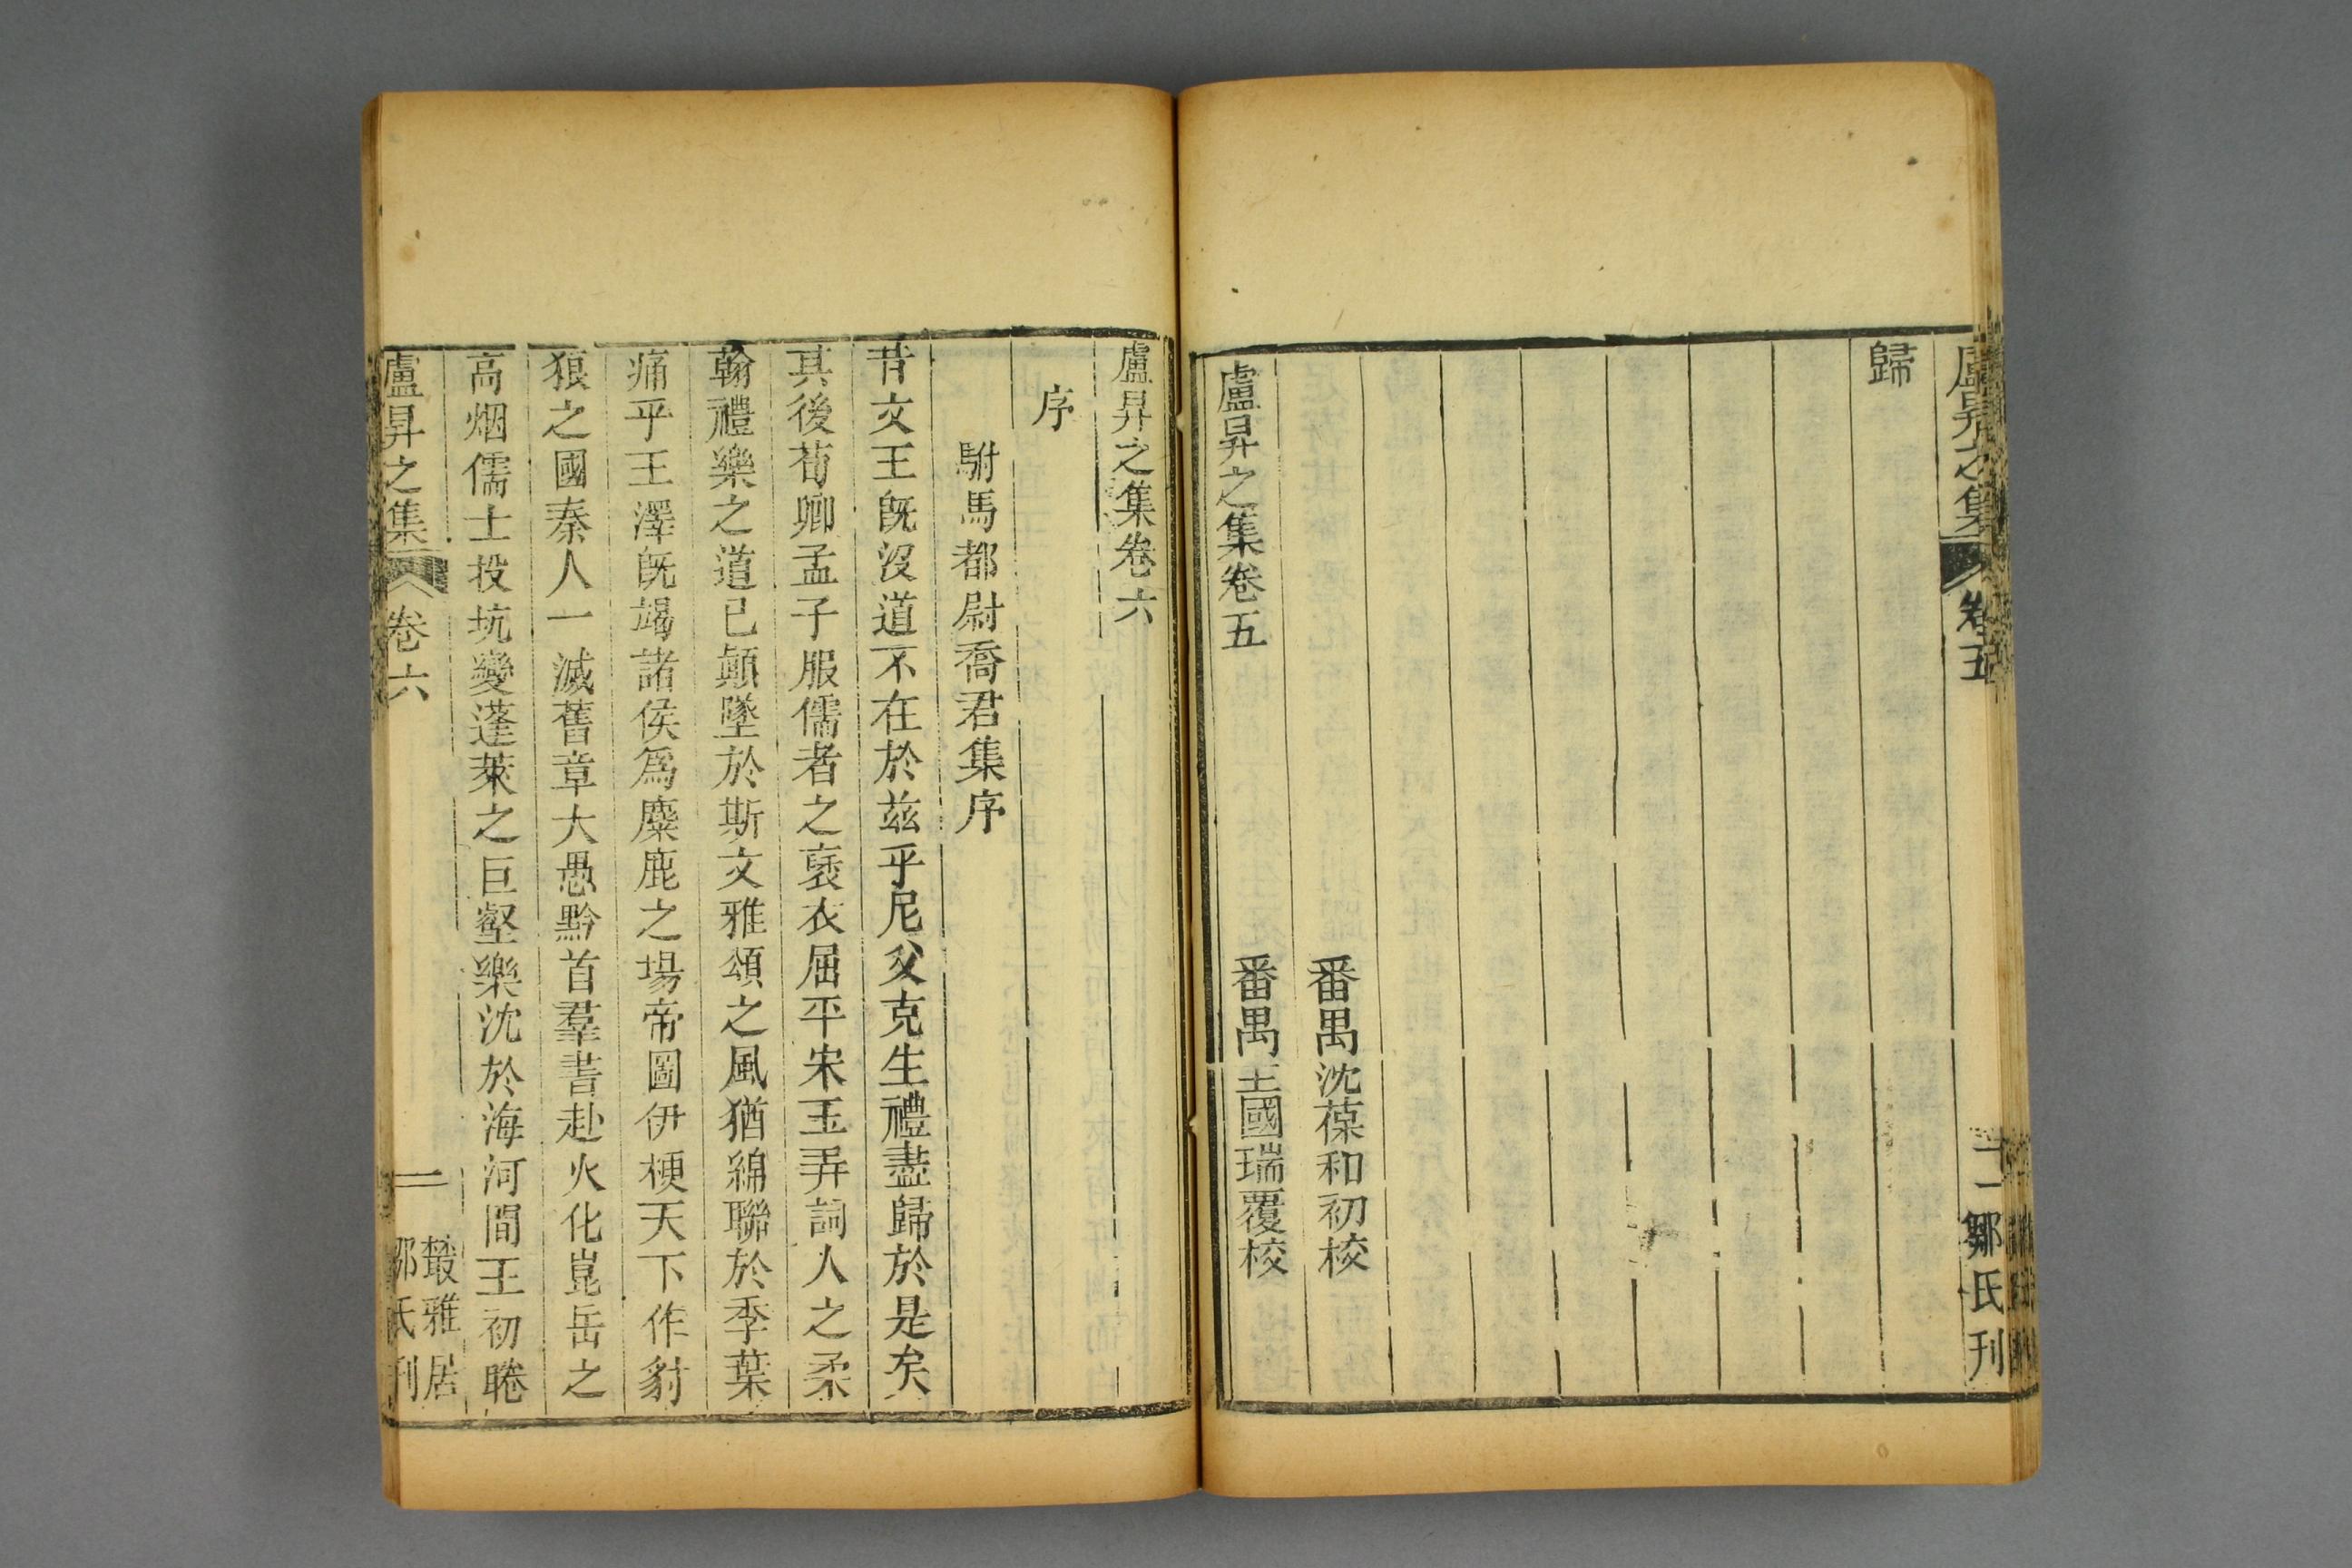 盧昇之集 卷五 十一 鄒氏刊
歸
番禺沈葆和初校
番禺王國瑞覆校
盧昇之集卷五
盧昇之集卷六
序
駙馬都尉喬君集序
昔文王旣沒道不在於茲乎尼父克生禮盡歸於是矣
其後荀卿孟子服儒者之襃衣屈平宋玉弄詞人之柔
翰禮樂之道已顚墜於斯文雅頌之風猶綿聯於季葉
痛乎王澤旣竭諸侯爲麋鹿之場帝圖伊梗天下作豺
狼之國秦人一滅舊章大愚黔首羣書赴火化崑岳之
高烟儒士投坑變蓬萊之巨壑樂沈於海河間王初睠
盧昇之集 卷六 一 叢雅居
鄒氏刊